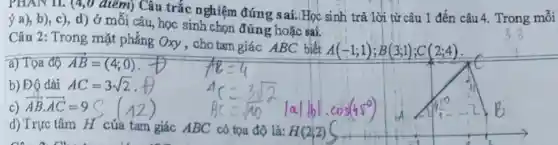 PHẦN II. (4,0 điểm) Câu trắc nghiệm đúng sai. Học sinh trả lời từ câu 1 đến câu 4. Trong mỗi
ý a), b), c), d) ở mỗi câu, học sinh chọn đúng hoặc sai.
3 3
Câu 2: Trong mặt phẳng Oxy, cho tam giác ABC biết A(-1;1); B(3;1); C(2;4).
a) Tọa độ AB = (4;0). Đ AB = 4
b) Độ dài AC = 3√2. Đ AC = 3√2
c) AB.AC = 9 S (12) BC = √10 |a| |b|. cos(45°)
d) Trực tâm H của tam giác ABC có tọa độ là: H(2;2) S
C
A
B